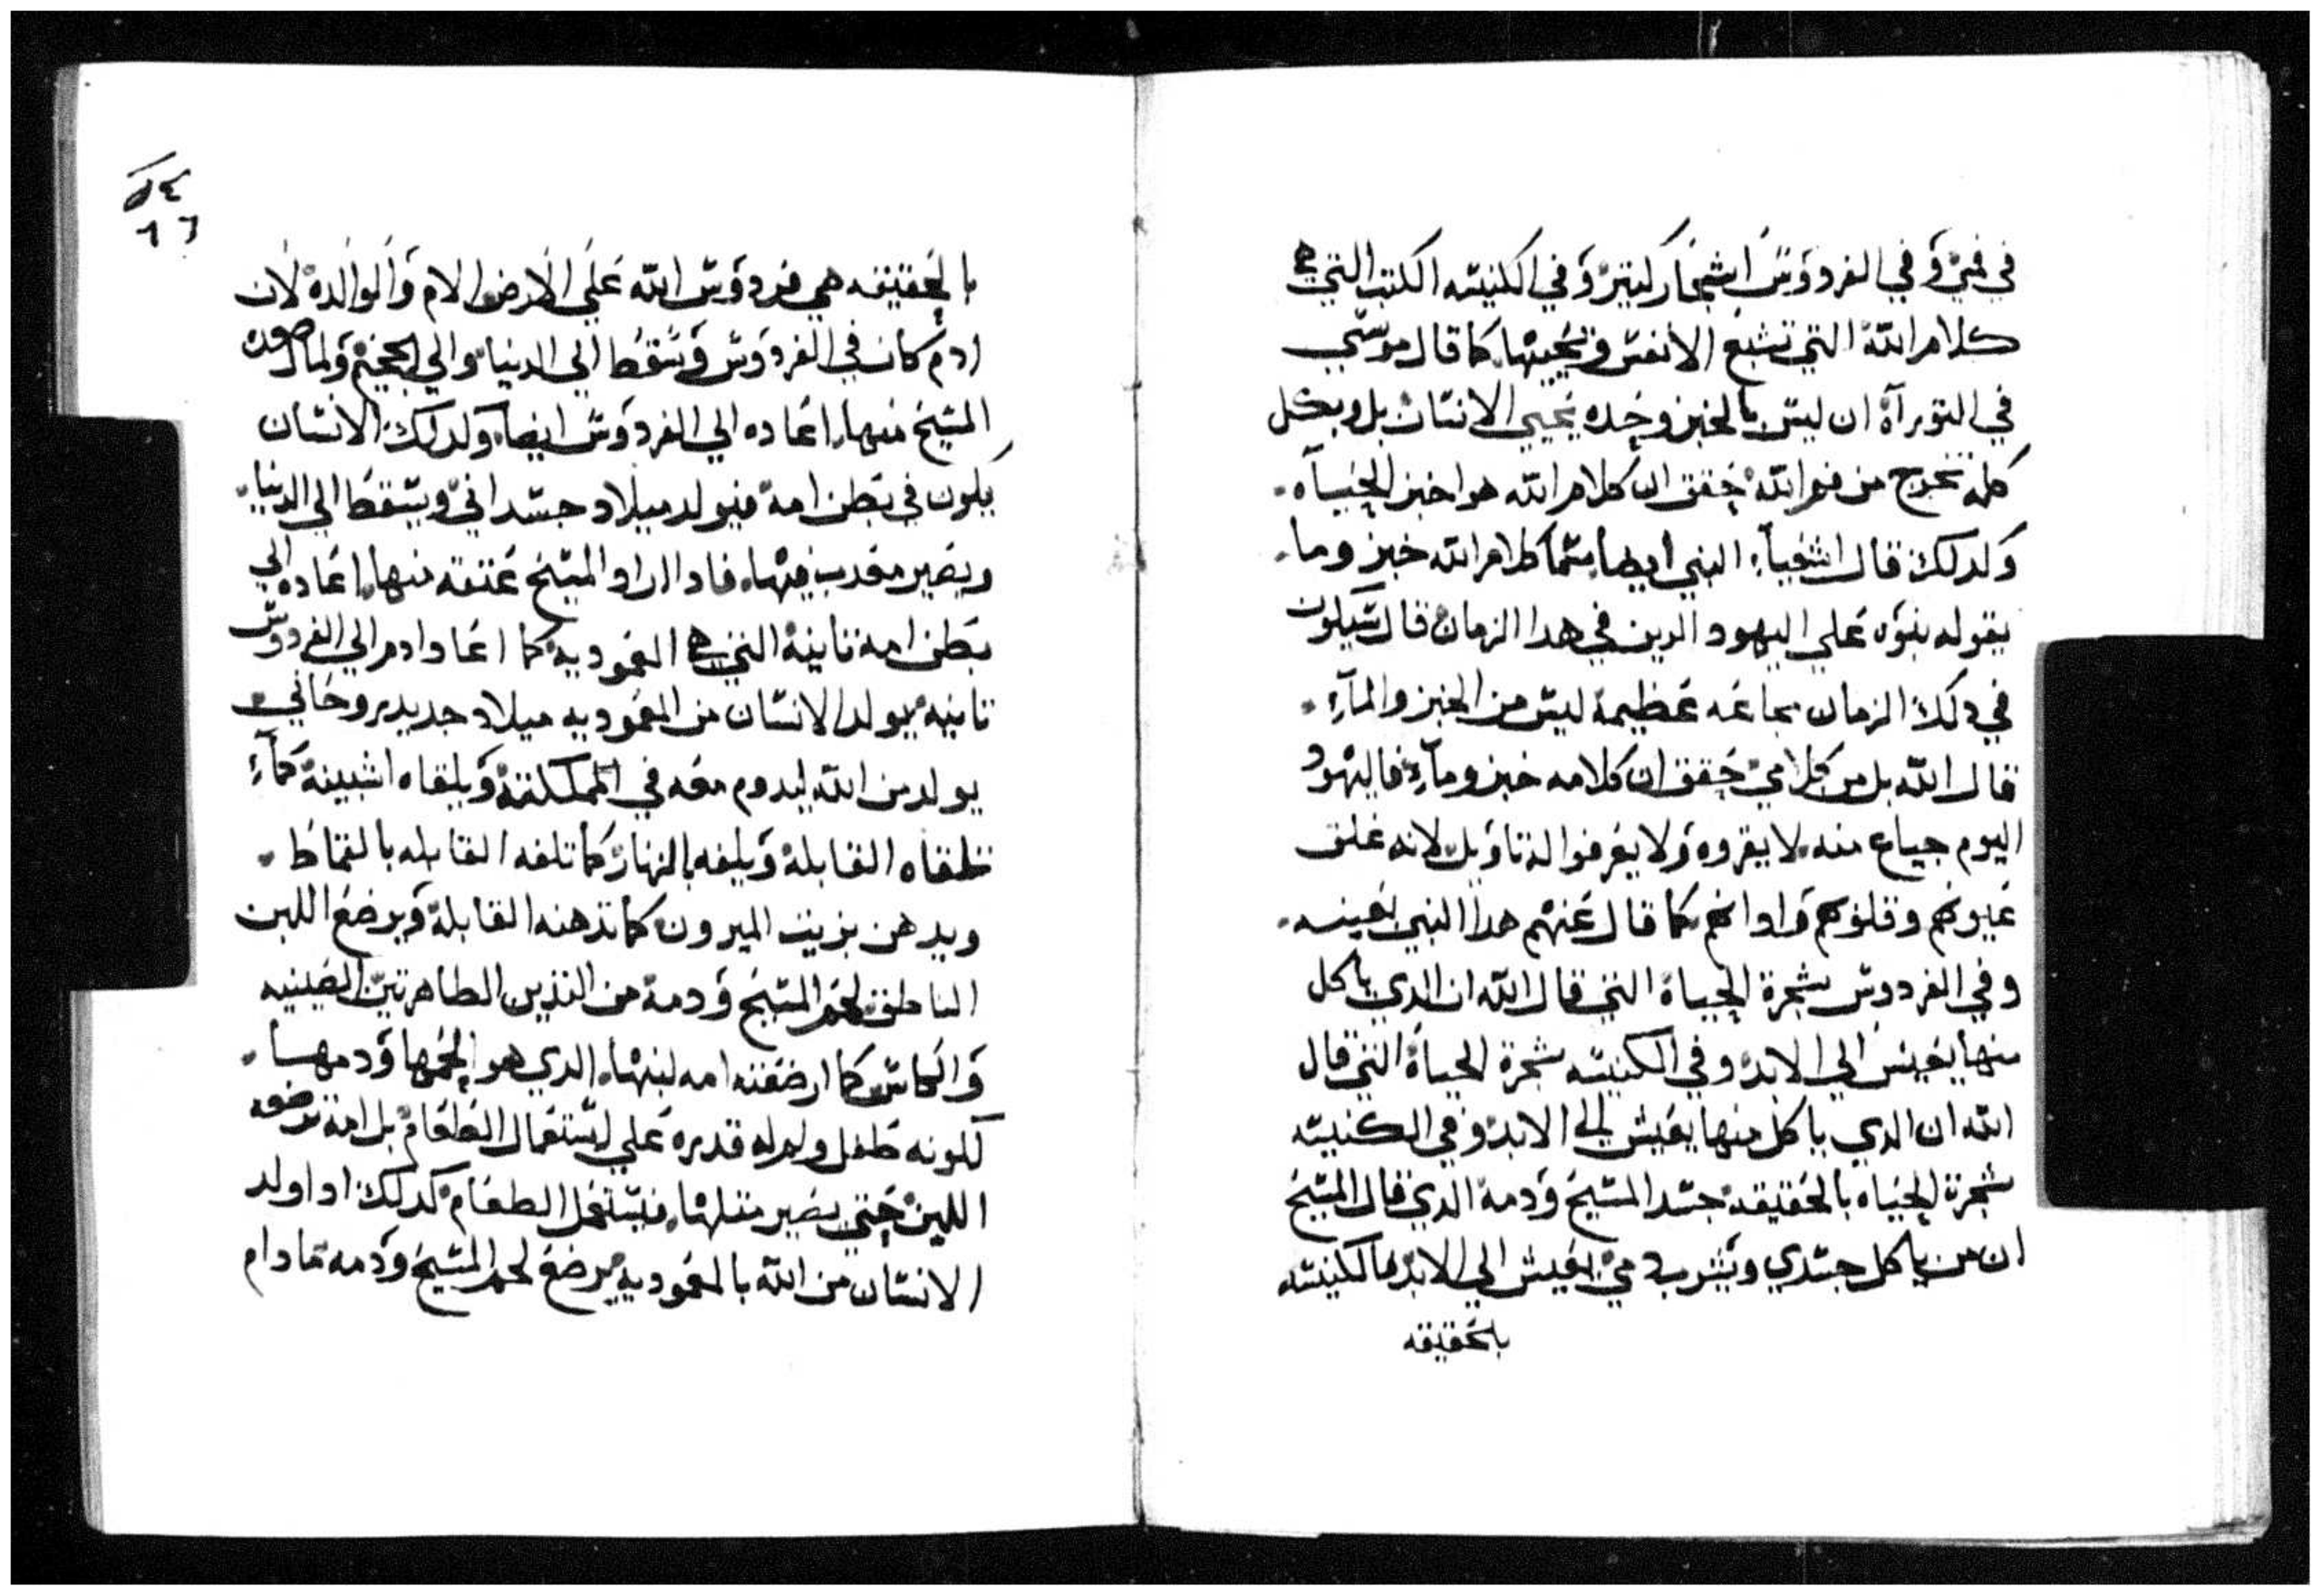 في فمي وفي الفردوس اشجار كتير وفي الكنيسه الكتب التي هي
كلام الله التي تشبع الانفس وتحييها كما قال موسي
في التوراة ان ليس بالخبز وحده يحيي الانسان بل وبكل
كلمة تخرج من فم الله حقق ان كلام الله هوا خبز الحياه
ولدلك قال اشعياء النبي ايضا سما كلام الله خبز وما
بقوله بنوه علي اليهود الدين في هدا الزمان قال سيكون
في دلك الزمان مجاعه عظيمة ليس من الخبز والماء
قال الله بل من كلامي حقق ان كلامه خبز وماء فاليهود
اليوم جياع منه لا يقروه ولا يعرفوا له تاويل لانه غلق
عيونهم وقلوبهم وادانهم كما قال عنهم هدا النبي بعينه
وفي الفردوس شجرة الحياة التي قال الله ان الدي ياكل
منها يعيش الي الابد وفي الكنيسه شجرة الحياة التي قال
الله ان الدي ياكل منها يعيش الي الابد وفي الكنيسه
شجرة الحياه بالحقيقة جسد المسيح ودمه الدي قال المسيح
ان من ياكل جسدي ويشرب دمي يعيش الي الابد فالكنيسه
بالحقيقه
١٦
بالحقيقه هي فردوس الله علي الارض والام والوالدة لان
ادم كان في الفردوس وسقط الي الدنيا والي الجحيم ولما
المسيح منها اعاده الي الفردوس ايضا ولدلك الانسان
يكون في بطن امه فيولد ميلاد جسداني ويسقط الي الدنيا
ويصير فيها فادا اراد المسيح عتقه منها اعاده الي
بطن امه تانية التي هي المعمودية كما اعاد ادم الي الفردوس
تانيه يولد الانسان من المعموديه ميلاد جديد روحاني
يولد من الله ليدوم معه في المملكته ويلقاه اشبينه كما
تلقاه القابلة ويلفه بالزنار كما تلفه القابله بالقماط
ويدهن بزيت الميرون كما تدهنه القابلة ويرضع اللبن
الناطق لحم المسيح ودمه من التديين الطاهرتين الصينيه
والكاس كما ارضعته امه لبنها الدي هو لحمها ودمها
لكونه طفل ولم له قدره علي استعمال الطعام بل امه ترضعه
اللبن حتي يصير متلها فيستعمل الطعام كدلك ادا ولد
الانسان من الله بالمعموديه يرضع لحم المسيح ودمه ما دام